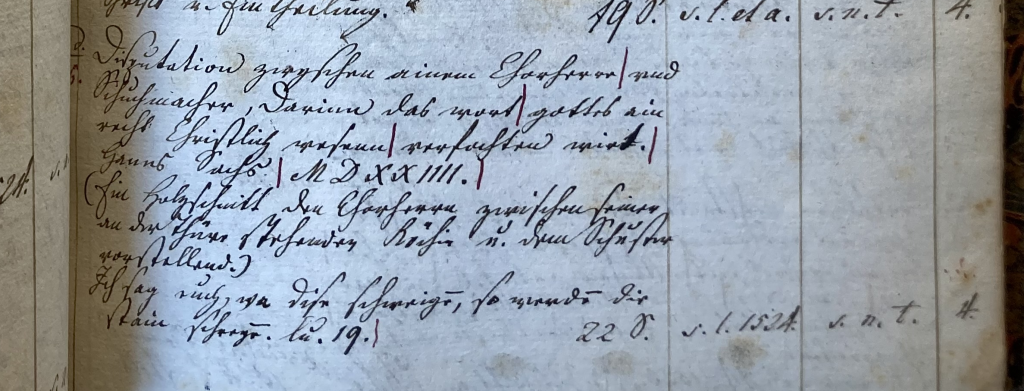 u. Eintheilung. 19 S. s. l. et a. s. n. t. 4.
Disputation zwyschen ainem Chorherre| vnd
Schuchmacher, Darinn das wort| gottes ain
recht Christlich wesenn| verfochten wirt.|
Hanns Sachs.| MDXXIIII.|
(Ein Holzschnitt den Chorherrn zwischen seiner
an der Thüre stehenden Köchin u. dem Schuster
vorstellend.)
Ich sag euch, wa dise schweigē, so werdē die
stain schreyē. Lu. 19.| 22 S. s. l. 1524. s. n. t. 4.
24.